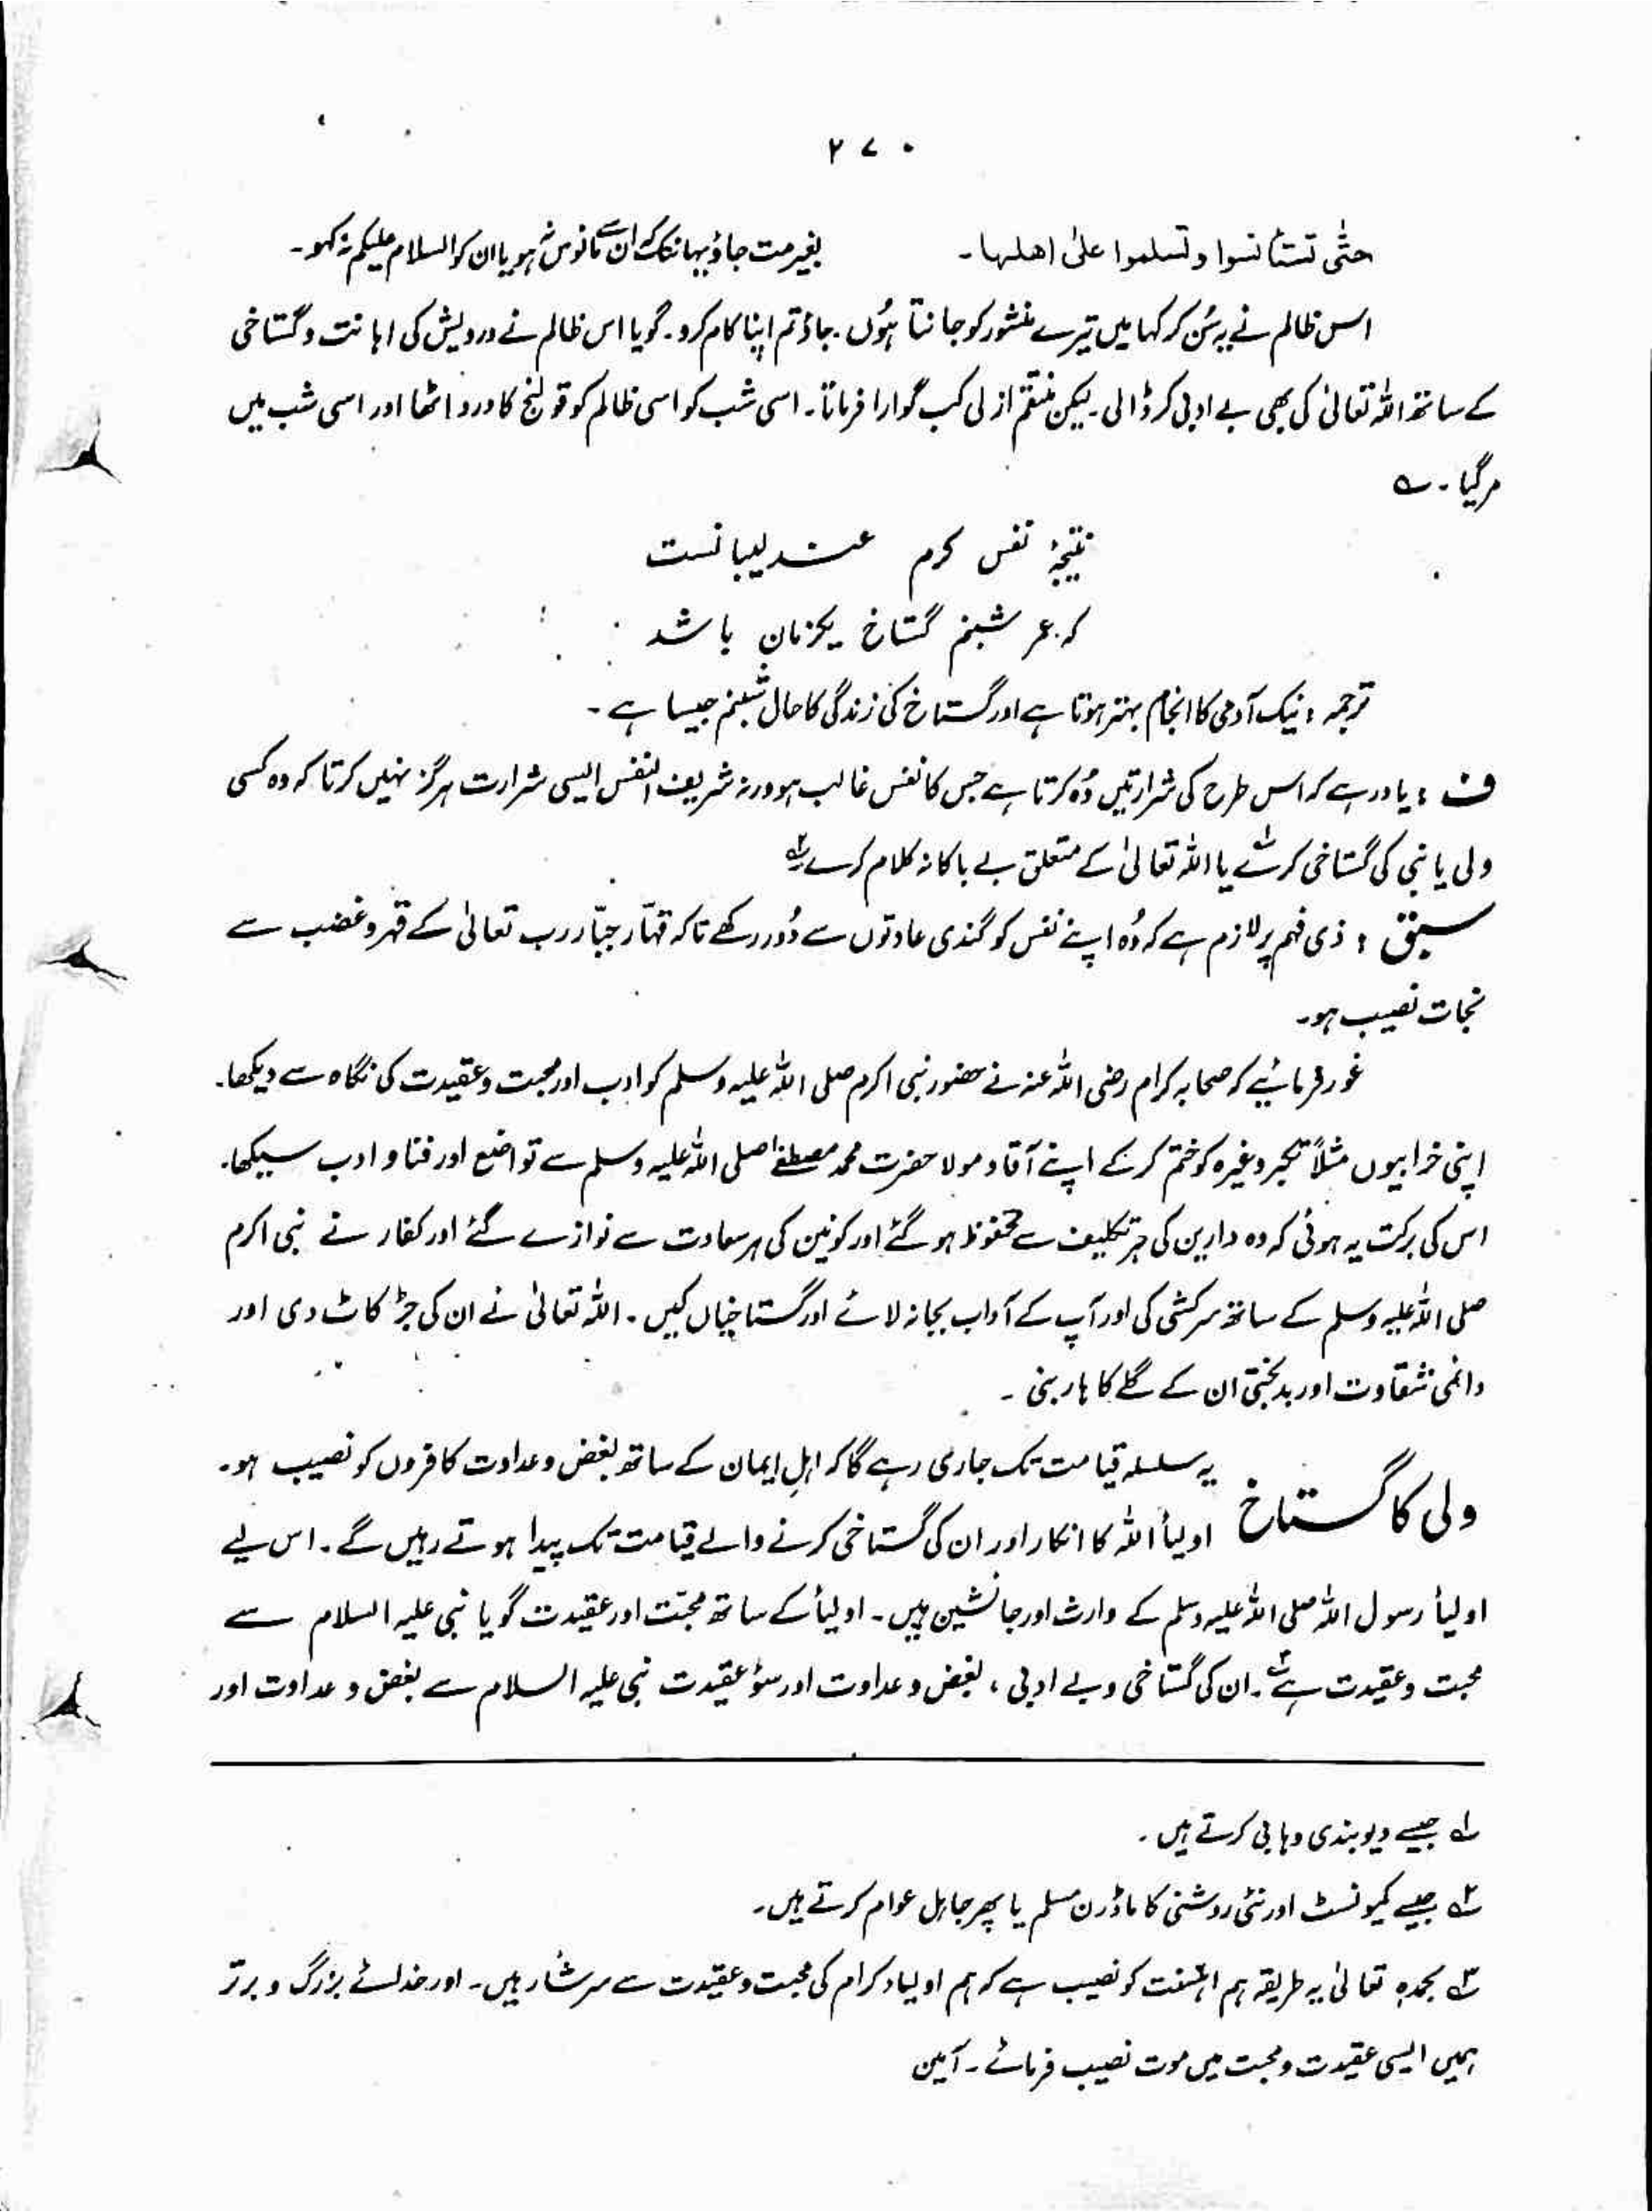 ۲۷۰
حتّٰی تستأنسوا وتسلموا علیٰ اھلہا۔ بغیر مت جاؤ یہانتک کہ ان سے مانوس نہ ہو یا ان کو السلام علیکم نہ کہو۔
اس ظالم نے یہ سُن کر کہا میں تیرے منشور کو جانتا ہُوں۔ جاؤ تم اپنا کام کرو۔ گویا اس ظالم نے درویش کی اہانت و گستاخی
کے ساتھ اللہ تعالیٰ کی بھی بے ادبی کر ڈالی۔ لیکن منتقم ازلی کب گوارا فرماتا۔ اسی شب کو اسی ظالم کو قولنج کا درد اٹھا اور اسی شب میں
مر گیا۔ ؎
نتیجۂ نفس کرم عندلیبانست
کہ عمر شبنم گستاخ یکزمان باشد
ترجمہ: نیک آدمی کا انجام بہتر ہوتا ہے اور گستاخ کی زندگی کا حال شبنم جیسا ہے۔
ف: یاد رہے کہ اس طرح کی شرارتیں وُہ کرتا ہے جس کا نفس غالب ہو ورنہ شریف النفس ایسی شرارت ہرگز نہیں کرتا کہ وہ کسی
ولی یا نبی کی گستاخی کرے۱؎ یا اللہ تعالیٰ کے متعلق بے باکانہ کلام کرے۲؎
سبق: ذی فہم پر لازم ہے کہ وُہ اپنے نفس کو گندی عادتوں سے دُور رکھے تاکہ قہّار جبّار رب تعالیٰ کے قہر و غضب سے
نجات نصیب ہو۔
غور فرمائیے کہ صحابہ کرام رضی اللہ عنہ نے حضور نبی اکرم صلی اللہ علیہ وسلم کو ادب اور محبت و عقیدت کی نگاہ سے دیکھا۔
اپنی خرابیوں مثلاً تکبر وغیرہ کو ختم کر کے اپنے آقا و مولا حضرت محمد مصطفےٰ صلی اللہ علیہ وسلم سے تواضع اور فنا و ادب سیکھا۔
اس کی برکت یہ ہوئی کہ وہ دارین کی ہر تکلیف سے محفوظ ہو گئے اور کونین کی ہر سعادت سے نوازے گئے اور کفار نے نبی اکرم
صلی اللہ علیہ وسلم کے ساتھ سرکشی کی اور آپ کے آداب بجا نہ لائے اور گستاخیاں کیں۔ اللہ تعالیٰ نے ان کی جڑ کاٹ دی اور
دائمی شقاوت اور بدبختی ان کے گلے کا ہار بنی۔
ولی کا گستاخ یہ سلسلہ قیامت تک جاری رہے گا کہ اہلِ ایمان کے ساتھ بغض و عداوت کافروں کو نصیب ہو۔
اولیأ اللہ کا انکار اور ان کی گستاخی کرنے والے قیامت تک پیدا ہوتے رہیں گے۔ اس لیے
اولیأ رسول اللہ صلی اللہ علیہ وسلم کے وارث اور جانشین ہیں۔ اولیأ کے ساتھ محبّت اور عقیدت گویا نبی علیہ السلام سے
محبت و عقیدت ہے۳؎۔ ان کی گستاخی و بے ادبی، بغض و عداوت اور سوٗ عقیدت نبی علیہ السلام سے بغض و عداوت اور
۱؎ جیسے دیوبندی وہابی کرتے ہیں۔
۲؎ جیسے کمیونسٹ اور نئی روشنی کا ماڈرن مسلم یا پھر جاہل عوام کرتے ہیں۔
۳؎ بحمدہٖ تعالیٰ یہ طریقہ ہم اہلسنت کو نصیب ہے کہ ہم اولیاء کرام کی محبت و عقیدت سے سرشار ہیں۔ اور خدائے بزرگ و برتر
ہمیں ایسی عقیدت و محبت میں موت نصیب فرمائے۔ آمین